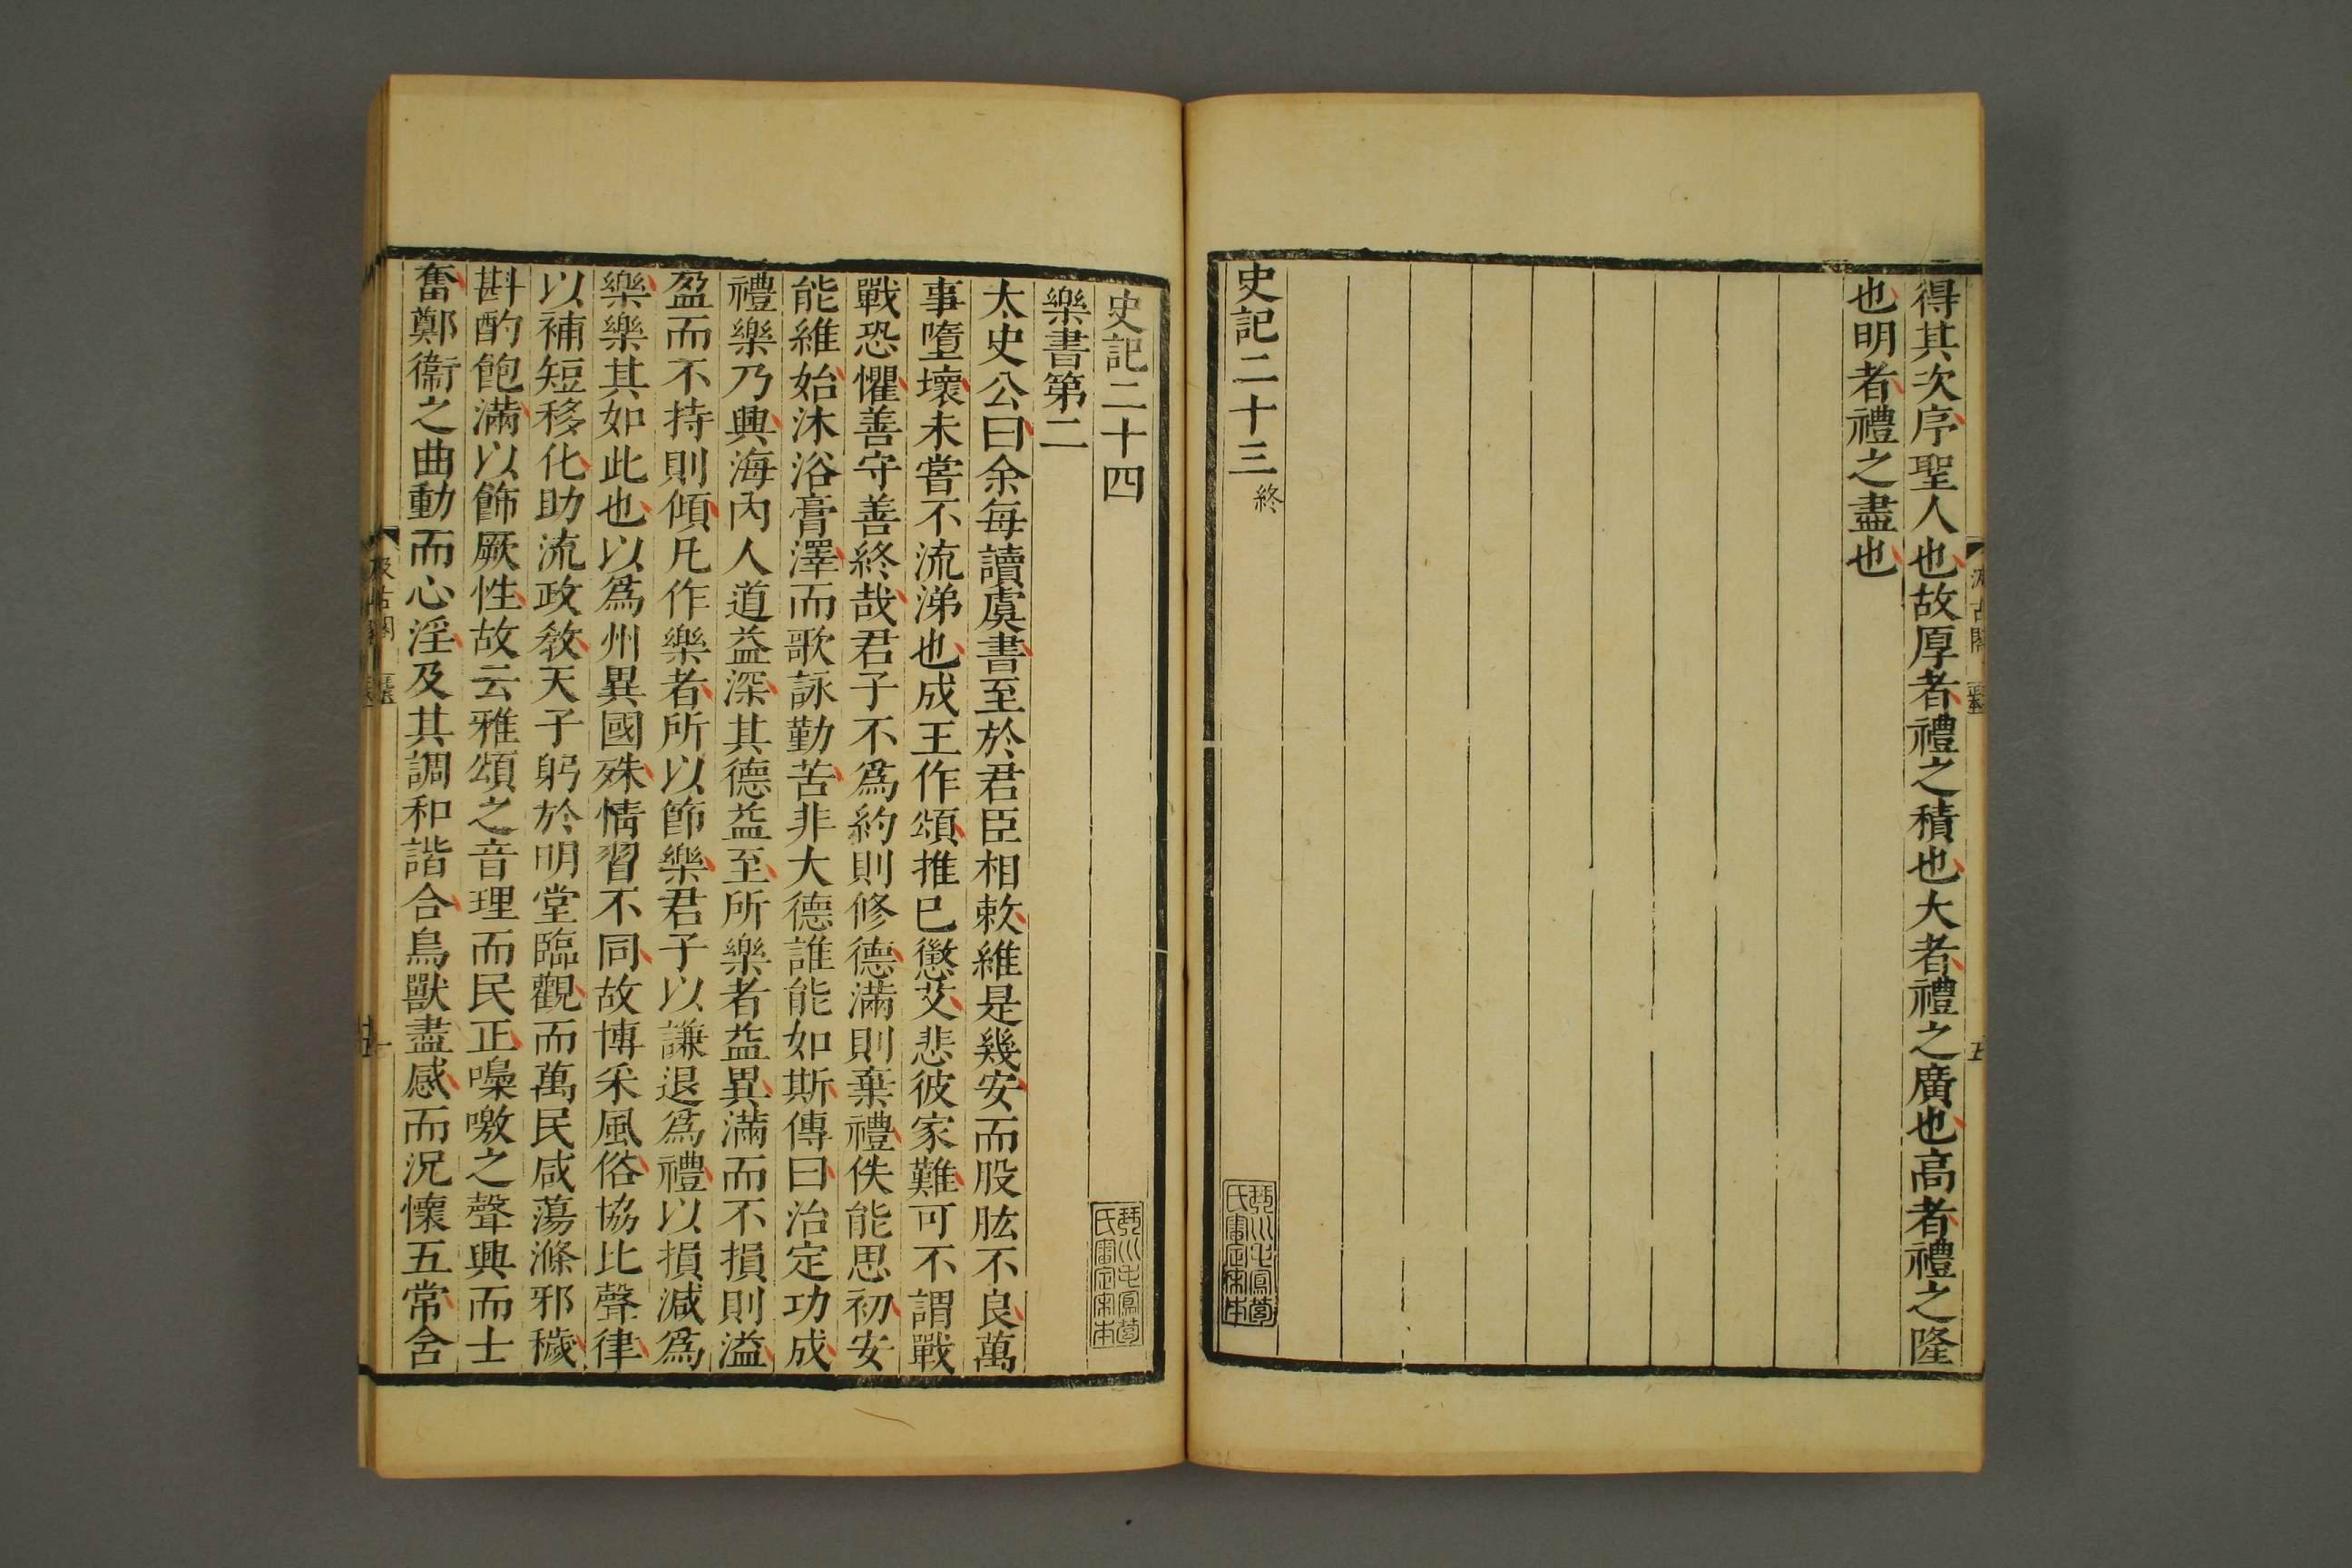 得其次序聖人也故厚者禮之積也大者禮之廣也高者禮之隆
也明者禮之盡也
史記二十三終
史記二十四
樂書第二
太史公曰余每讀虞書至於君臣相敕維是幾安而股肱不良萬
事墮壞未嘗不流涕也成王作頌推己懲艾悲彼家難可不謂戰
戰恐懼善守善終哉君子不爲約則修德滿則棄禮佚能思初安
能維始沐浴膏澤而歌詠勤苦非大德誰能如斯傳曰治定功成
禮樂乃興海內人道益深其德益至所樂者益異滿而不損則溢
盈而不持則傾凡作樂者所以節樂君子以謙退爲禮以損減爲
樂樂其如此也以爲州異國殊情習不同故博采風俗協比聲律
以補短移化助流政敎天子躬於明堂臨觀而萬民咸蕩滌邪穢
斟酌飽滿以飾厥性故云雅頌之音理而民正嘄噭之聲興而士
奮鄭衞之曲動而心淫及其調和諧合鳥獸盡感而況懷五常含